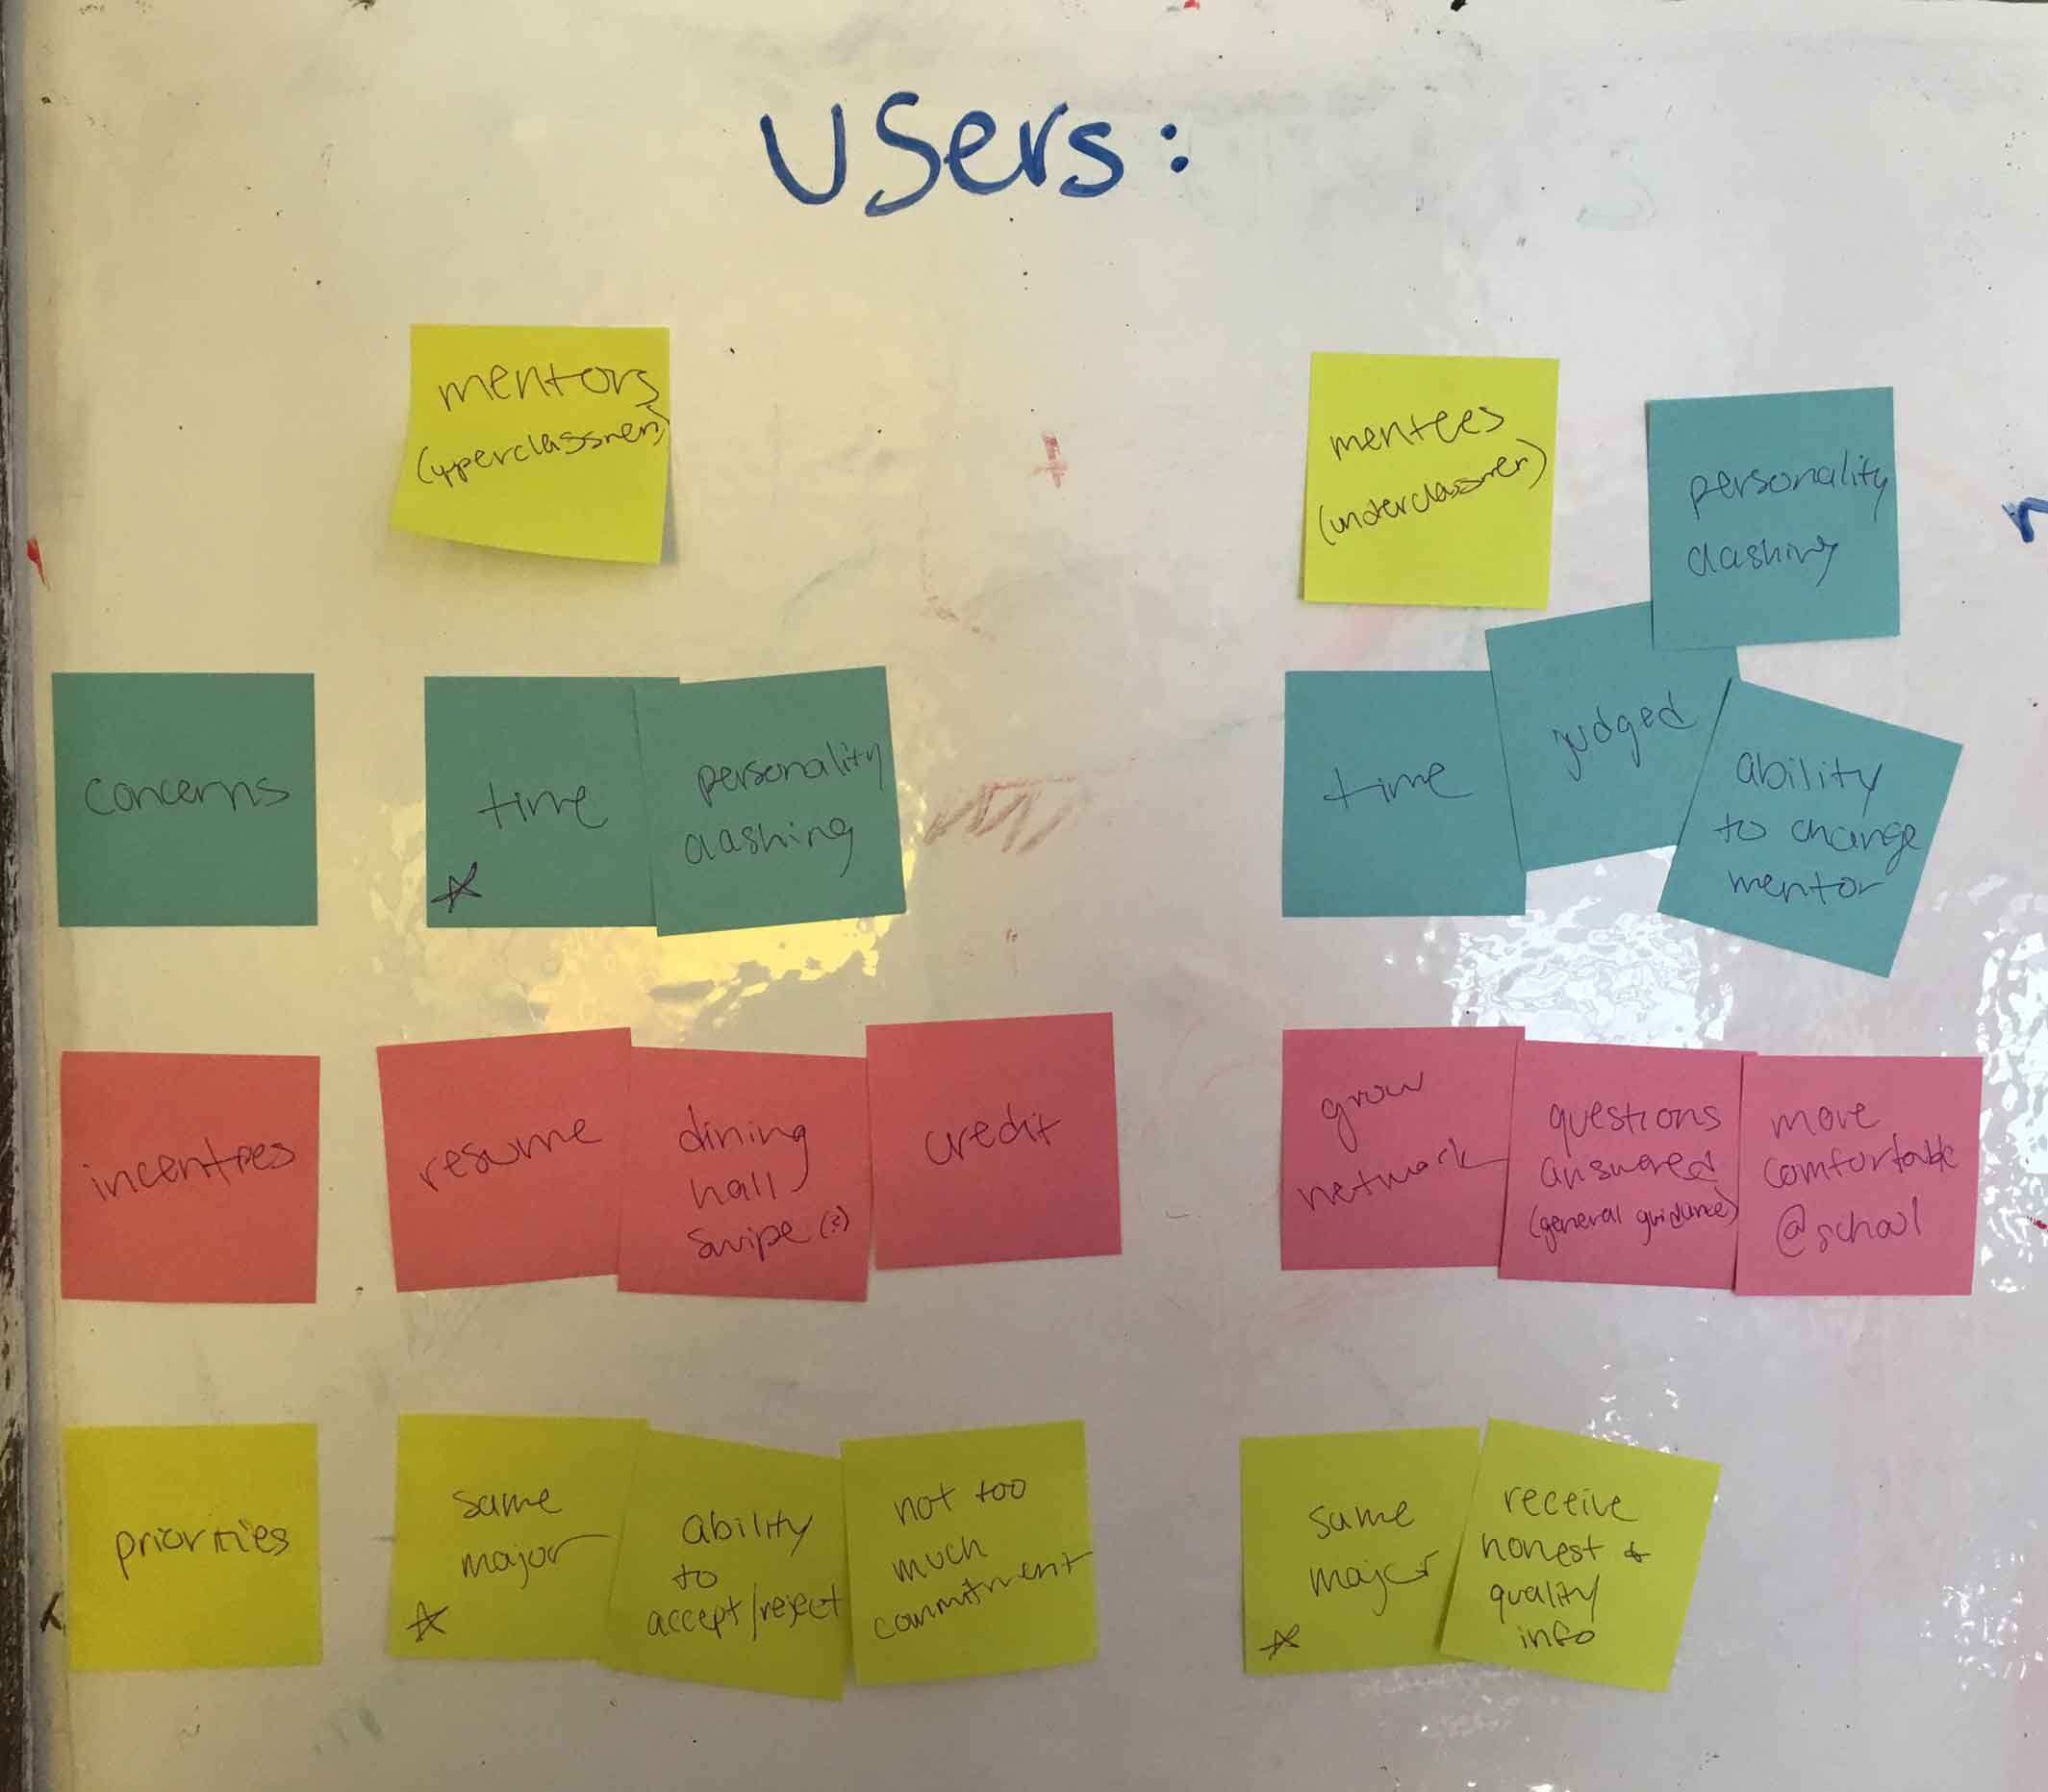 users:
mentors
(upperclassmen)
mentees
(underclassmen)
personality
clashing
concerns
time
personality
clashing
time
judged
ability
to change
mentor
incentives
resume
dining
hall
swipe (?)
credit
grow
network
questions
answered
(general guidance)
more
comfortable
@school
priorities
same
major
ability
to
accept/reject
not too
much
commitment
same
major
receive
honest &
quality
info